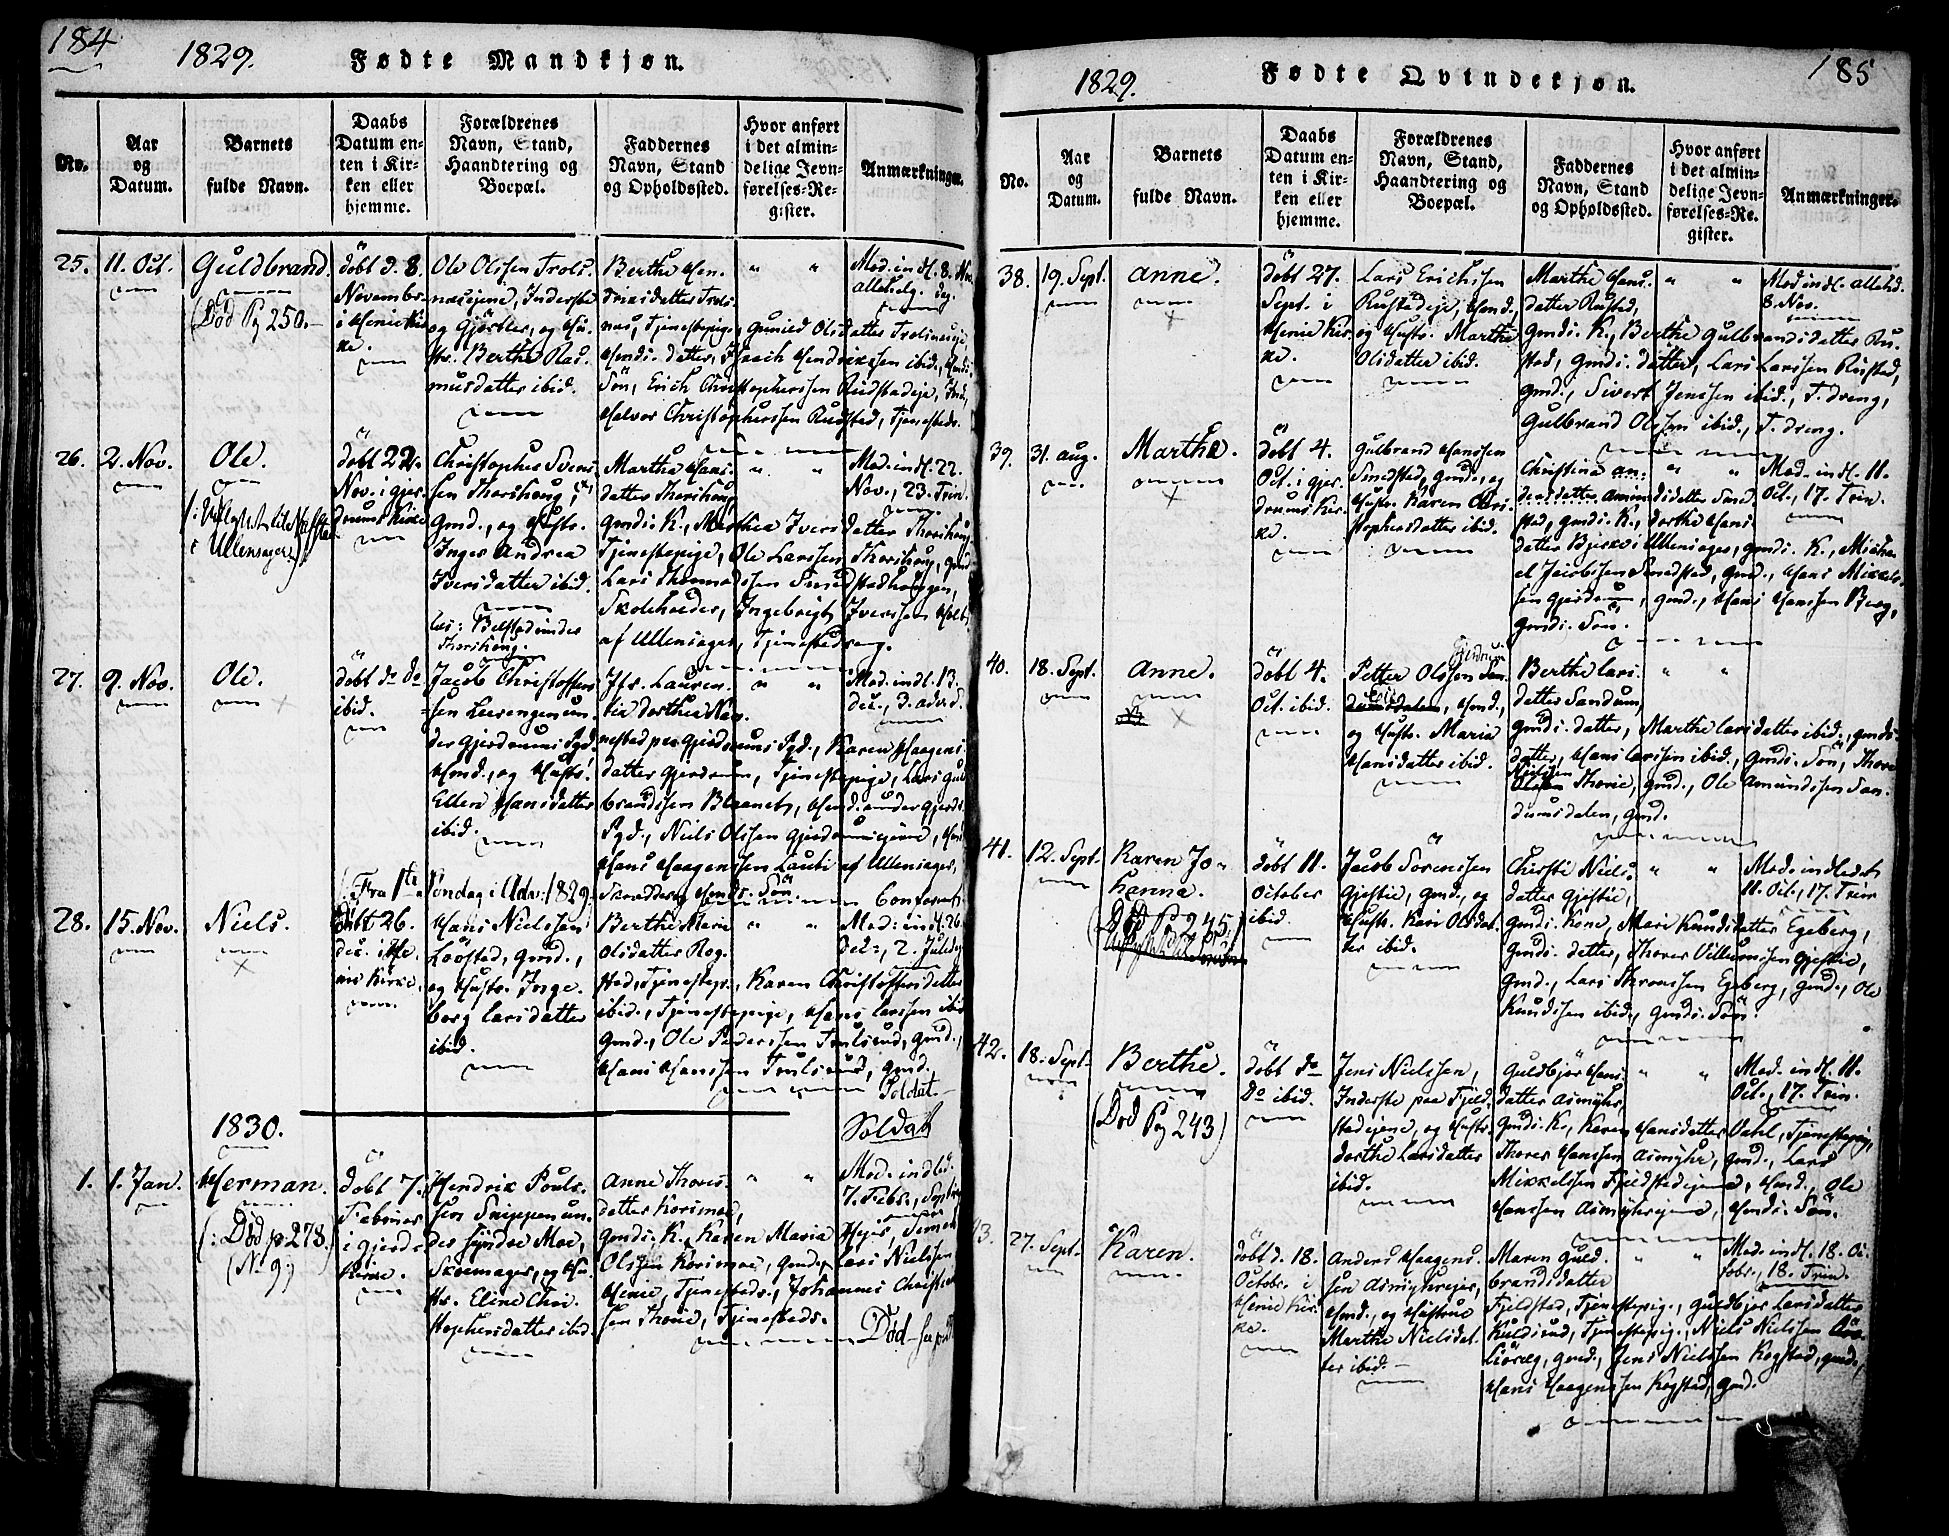 184
1829.
Fødte Mandkjøn.
No.
Aar
og
Datum.
Barnets
fulde Navn.
Daabs
Datum en-
ten i Kir-
ken eller
hjemme.
Forældrenes
Navn, Stand,
Haandtering og
Boepæl.
Faddernes
Navn, Stand
og Opholdssted.
Hvor anført
i det almin-
delige Jevn-
førelses-Re-
gister.
Anmærkninger.
25.
11. Oct.
Guldbrand.
(Död Pg 250.-
döbt d. 8.
Novembr.
i Henie Kir
ke.
Ole Olssen Trols-
næsejene, Inderste
og Gjörtler, og Hu-
str. Berthe Ras-
musdatter ibid.
Berthe Hen-
driksdatter Trols-
næs, Tjenestepige, Gunild Olsdatter Trolsnæseje,
Hmds. datter, Isach Hendrikssen ibid., Hmds.
Sön, Erich Christopherssen Rudstadeje, Ind.
Halvor Christopherssen Rudstad, Tjenesteds.
" "
Mod. indl. 8. Nov.
allehelg. dag.
26.
2. Nov.
Ole.
Ullensager.)
döbt 22.
Nov. i gjer-
drums Kirke
Christopher Svens-
sen Thorshoug,
Gmd., og Hustr.
Inger Andrea
Iversdatter ibid.
Thorshoug.
Martha Hans-
datter Thorshoug
gmds. K., Marthea Iversdatter Thorshoug
Tjenestepige, Ole Larssen Thorshoug, gmd
Lars Thomassen Smedstadhougen,
Skoleholder, Ingebrigt Iverssen Holt
af Ullensager, Tjenestedreng.
" "
Mod. indl. 22.
Nov., 23. Trin.
27.
9. Nov.
Ole.
döbt do do
ibid.
Jacob Christoffers-
sen Leerengen un-
der Gjerdrums Pgd.
Hmd., og Hustr.
Ellen Hansdatter
ibid.
Jfr. Lauren-
tia Dorthea Næs-
nestad paa Gjerdrums Pgd., Karen Haagens-
datter Gjerdrum, Tjenestepige, Lars Gul-
brandssen Blaanebs, Hmd. under Gjerdr.
Pgd., Niels Olssen Gjerdrumsejene, Hmd
Hans Haagenssen Laubi af Ullensager,
Skrædder, Hmds. Sön.
" "
Mod. indl. 13.
dec., 3. advd. S.
(Fra 1te Söndag i Adv: 1829
28.
15. Nov.
Niels.
döbt 26.
dec. i He-
nie Kirke.
Hans Nielssen
Löpstad, gmd.,
og Hustr. Inge-
borg Larsdatter
ibid.
Berthe Marie
Olsdatter Rog-
stad, Tjenestep., Karen Christoffersdatter
ibid., Tjenestepige, Hans Larssen ibid
gmd., Ole Pederssen Trulsrud, gmd.,
Hans Hanssen Trulsrud, gmd.
Soldat.
" "
Mod: indl. 26
Dec:, 2. Juledag
1830.
Soldat
1.
1. Jan.
Herman.
(: Död p. 278.
(No 9:)
döbt 7.
Februar
i gjerdr.
Kirke.
Hendrik Pouls-
sen Snippen un-
der Syndre Moe,
Skoemager, og Hu-
str. Eline Chri-
stophersdatter ibid.
Anne Thores-
datter Korsmoe,
gmds. K., Karen Maria
Olssen Korsmoe, gmds., Lars Nielssen
Henie, Tjenesteds., Johannes Christen-
sen Thorie, Tjenesteds.
" "
Mod. indled.
7. Febr.,
Död
185
1829.
Fødte Qvindekjøn.
No.
Aar
og
Datum.
Barnets
fulde Navn.
Daabs
Datum en-
ten i Kir-
ken eller
hjemme.
Forældrenes
Navn, Stand,
Haandtering og
Boepæl.
Faddernes
Navn, Stand
og Opholdssted.
Hvor anført
i det almin-
delige Jevn-
førelses-Re-
gister.
Anmærkninger.
38.
19. Sept.
Anne.
döbt 27.
Sept. i
Henie Kir-
ke.
Lars Erichssen
Rustadeje, Hmd.,
og Hustr. Marthe
Olsdatter ibid.
Marthe Hans-
datter Rustad,
Gmds. K., Berthe Gulbrandsdatter Ru-
stad, Gmds. datter, Lars Larssen Rustad,
Gmd., Sivert Jenssen ibid., T. dreng,
Gulbrand Olssen ibid., T. dreng.
" "
Mod indl. allehel.
8. Nov.
39.
31. aug.
Marthe.
döbt 4.
Oct. i gjer-
drums Kir-
ke.
Gulbrand Hanssen
Smedstad, gmd., og
Hustr. Karen Chri-
stophersdatter ibid.
Christina An-
dersdatter Smed-
stad, gmds. K., dorthe Hans-
datter Bjerke i Ullensager, gmds. K., Micha-
el Jacobssen Smedstad, gmd., Hans Mikkels-
sen Gjerdrum, gmd., Hans Hanssen Berg,
gmds. Sön.
" "
Mod. indl. 11.
Oct., 17. Trin.
40.
18. Sept.
Anne.
döbt 4.
Oct. ibid.
Petter Olssen San-
dumsdalen, Hmd.,
og Hustr. Maria
Hansdatter ibid.
Berthe Lars-
datter Sandum,
gmds. datter, Marthe Larsdatter ibid., gmds.
datter, Hans Larssen ibid., gmds. Sön, Thore
Thorie, gmd., Ole Amundssen San-
dumsdalen, gmd.
" "
41.
12. Sept.
Karen Jo-
hanna.
(Död P. 245)
döbt 11.
October
ibid.
Jacob Sörenssen
Gjestie, gmd., og
Hustr. Kari Olsdat-
ter ibid.
Chirstie Niels-
datter Gjestie,
gmds. Kone, Mari Knudsdatter Egeberg,
gmds. datter, Thorer Villumssen Gjestie,
gmd., Lars Thronssen Egeberg, gmd., Ole
Knudssen ibid., gmds. Sön.
" "
Mod. indledet
11. Oct., 17. Trin
42.
18. Sept.
Berthe.
(Död Pg 243)
döbt do
Do ibid.
Jens Nielssen,
Inderste paa Fjeld-
stadejene, og Hustr.
dorthe Larsdatter
ibid.
Guldbjör Hans-
datter Asmyhr,
gmds. K., Karen Hansdatter Vahl, Tjenestepig,
Thorer Hanssen Asmyhr, gmd., Lars
Mikkelssen Fjeldstadejene, Hmd., Ole
Hanssen Asmyhrejene, Hmds. Sön.
" "
Mod. indl. 11.
Oct., 17. Trin.
43.
27. Sept.
Karen.
döbt d. 18.
Octobr. i
Henie Kir-
ke.
Anders Haagens-
sen Asmyhrejer,
Hmd., og Hustrue
Marthe Nielsdat-
ter ibid.-
Maren Guld-
brandsdatter
Fjeldstad, Tjenestepig., Guldbjor Larsdatter
Kulsrud, Tjenestepig., Niels Nielssen
gmd., Jens Nielssen Kogstad, gmd.,
Hans Haagenssen Kogstad, gmd.
" "
Mod. indl. 18. Oc-
tobr., 18. Trin.